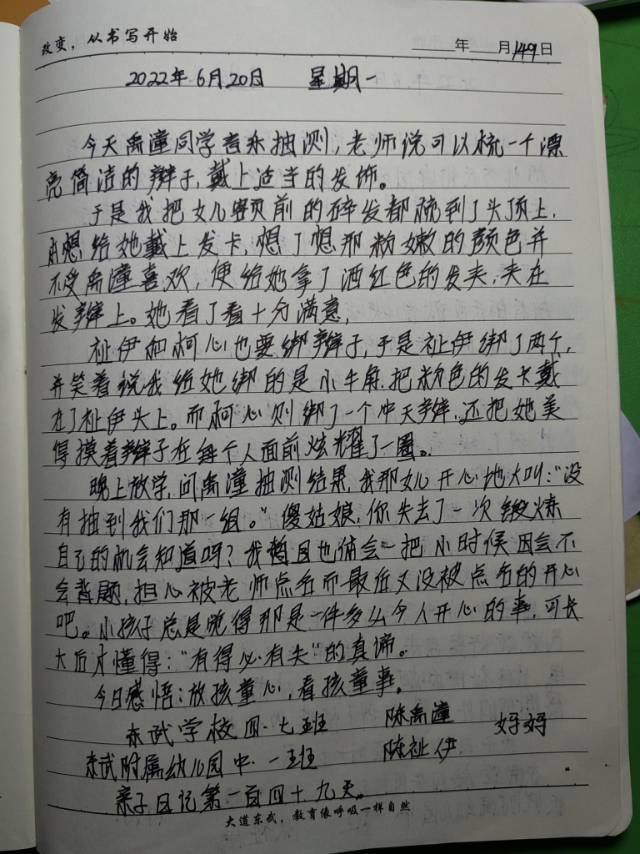 改变，从书写开始
年 月149日
2022年6月20日 星期一
今天禹潼同学音乐抽测，老师说可以梳一个漂
亮简洁的辫子，戴上适当的发饰。
于是我把女儿额前的碎发都梳到了头顶上，
本想给她戴上发卡，想了想那粉嫩的颜色并
不受禹潼喜欢，便给她拿了酒红色的发夹，夹在
发辫上。她看了看十分满意，
祉伊和柯心也要绑辫子，于是祉伊绑了两个，
并笑着说我给她绑的是小牛角，把粉色的发卡戴
在了祉伊头上。而柯心则绑了一个冲天辫，还把她美
得摸着辫子在每个人面前炫耀了一圈。
晚上放学，问禹潼抽测结果，我那女儿开心地大叫："没
有抽到我们那一组。"傻姑娘，你失去了一次锻炼
自己的机会知道吗？我暂且也体会一把小时候因会不
会背题，担心被老师点名而最后又没被点名的开心
吧。小孩子总是觉得那是一件多么令人开心的事，可长
大后才懂得："有得必有失"的真谛。
今日感悟：放孩童心，看孩童事。
东武学校四·七班 陈禹潼 妈妈
东武附属幼儿园中·一班 陈祉伊
亲子日记第一百四十九天。
大道东武，教育像呼吸一样自然